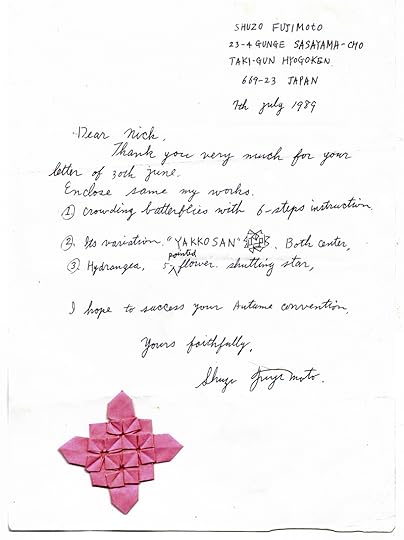 SHUZO FUJIMOTO
23-4 GUNGE SASAYAMA-CHO
TAKI-GUN HYOGOKEN
669-23 JAPAN
7th july 1989
Dear Nick,
Thank you very much for your
letter of 30th june.
Enclose same my works.
① Crowding batterflies with 6-steps instruction.
② Its variation. "YAKKOSAN" Both center,
③ Hydrangea, 5 pointed flower. shutting star,
I hope to success your Autume convention.
Yours faithfully,
Shuzo Fujimoto.